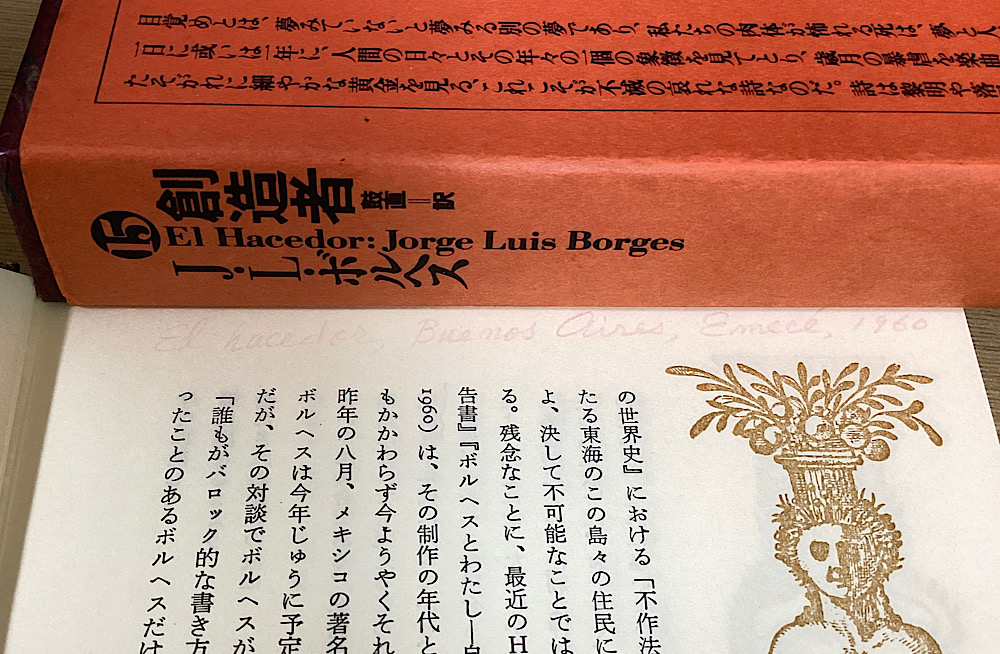 目覚めとは、夢みていないと夢みる別の夢であり、私たちの肉体が怖れる死は、夢と人
一日に或いは一年に、人間の日々とその年々の一個の象徴を見てとり、歳月の暴虐を楽曲
たそがれに細やかな黄金を見る、これこそが不滅の哀れな詩なのだ。詩は黎明や落
創造者 鼓直=訳
15
El Hacedor: Jorge Luis Borges
J・L・ボルヘス
El hacedor, Buenos Aires, Emecé, 1960
の世界史』における「不作法
たる東海のこの島々の住民に
よ、決して不可能なことでは
る。残念なことに、最近のH
告書』『ボルヘスとわたし—自
1960）は、その制作の年代と
もかかわらず今ようやくそれ
昨年の八月、メキシコの著名
ボルヘスは今年じゅうに予定
だが、その対談でボルヘスが
「誰もがバロック的な書き方
ったことのあるボルヘスだけ